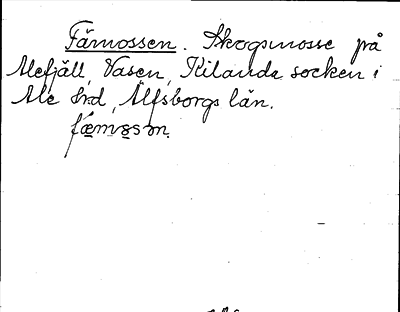 Fämossen. Skogsmosse på
Alefjäll, Vasen, Kilanda socken i
Ale hrd, Älfsborgs län.
fæmɜsm.